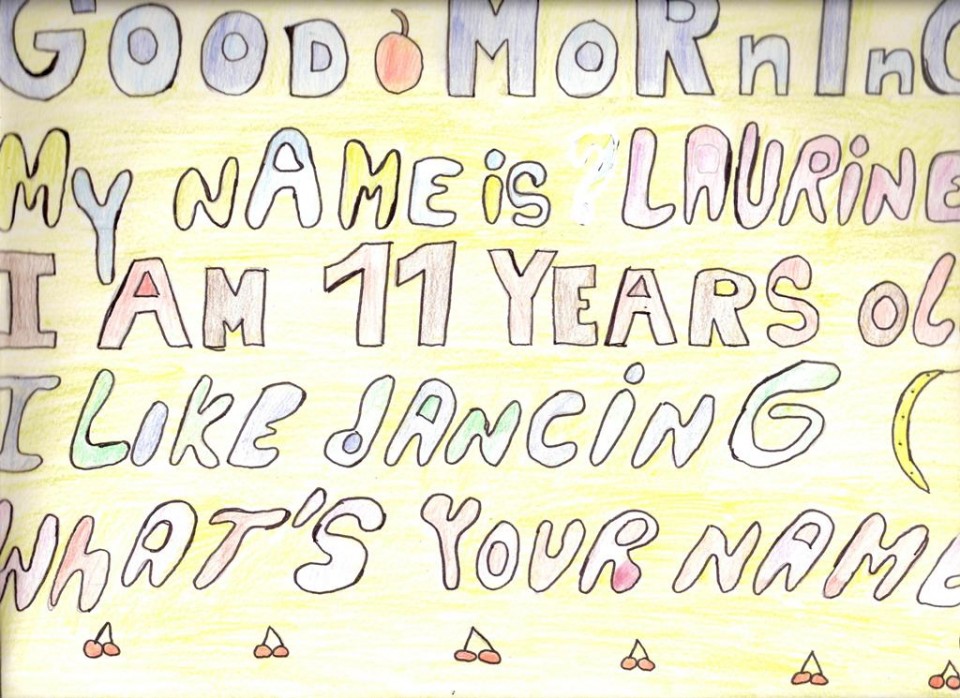 GOOD MORnInG
MY NAME is ? LAURINE
I AM 11 YEARS OL
I LiKE dANCiNG
WhAT'S YOUR NAME